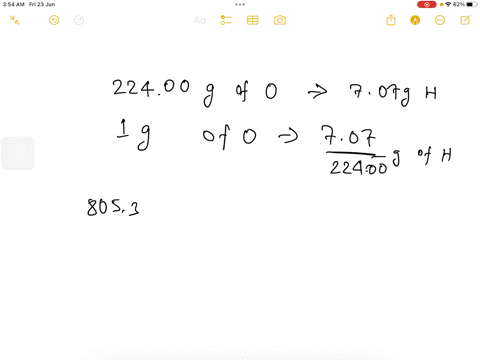 3:54 AM Fri 23 Jun
62%
Aa
224.00 g of O → 7.07g H
1 g of O → 7.07
224.00 g of H
805.3